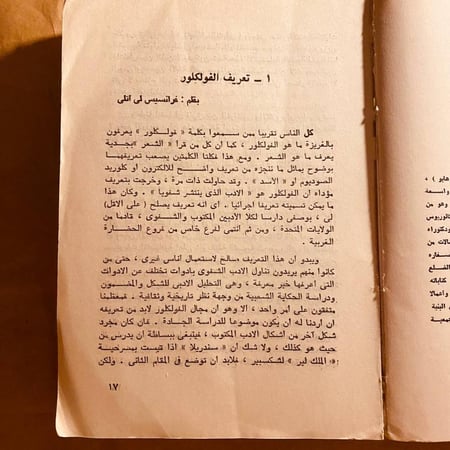 ١ ـ تعريف الفولكلور
بقلم : فرانسيس لى اتلى
كل الناس تقريبا ممن سمعوا بكلمة « فولكلور » يعرفون
بالغريزة ما هو الفولكلور ، كما ان كل من قرأ « الشعر » بجدية
يعرف ما هو الشعر . ومع هذا فكلتا الكلمتين يصعب تعريفهما
بوضوح يماثل ما نتجزه من تعريف واضح للالكترون او كلوريد
الصوديوم او « الاسد » . وقد حاولت ذات مرة ، وخرجت بتعريف
مؤداه ان الفولكلور هو « الادب الذى ينتشر شفويا » . وهو ما
ما يمكن تسميته تعريفا اجرائيا . اى انه تعريف يصلح ( على الاقل )
لى ، بوصفى دارسا لكلا الأدبين المكتوب والشفوى ، قادما من
الولايات المتحدة ، ومن ثم أنتمى لفرع خاص من فروع الحضارة
الغربية .
ويبدو أن هذا التعريف صالح لاستعمال أناس غيرى ، حتى من
كانوا منهم يريدون تناول الادب الشفوى بأدوات تختلف عن الادوات
التى أعرفها خير معرفة ، وهى التحليل الأدبى للشكل والمضمون
ودراسة الحكاية الشعبية من وجهة نظر تاريخية وثقافية . فمعظمنا
متفقون على أمر واحد ، الا وهو أن مجال الفولكلور لابد من تعريفه
ان اردنا له ان يكون موضوعا للدراسة الجادة . فان كان مجرد
شكل آخر من أشكال الادب المكتوب ، فينبغى ببساطة أن يدرس من
حيث هو كذلك ، ولا شك أن « سندريلا » اذا قيست بمسرحية
« الملك لير » لشكسبير ، فلابد أن توضع فى المقام الثانى . ولكن
١٧
هايو ) ،
واسعة
وهو من
كالوريوس
دكتوراه
حالات من
سفاره
القلع
كتاباته
واعمالا
البنية
جمعية